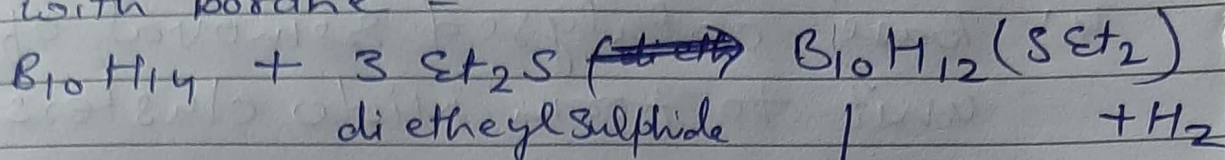 with borane =
B10H14 + 3 Et2S B10H12(SEt2)
dietheyl sulphide + H2